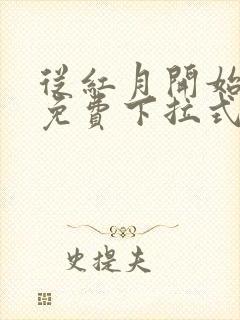 從紅月開始
免費下拉式
史提夫